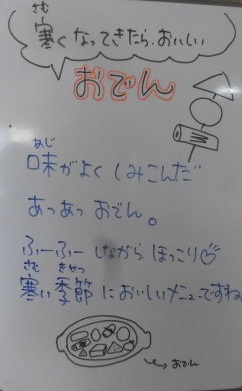 さむ
寒くなってきたら、おいしい
おでん
あじ
味がよくしみこんだ
あつあつおでん。
ふーふーしながらほっこり♡
さむ きせつ
寒い季節においしいメニューですね
おでん